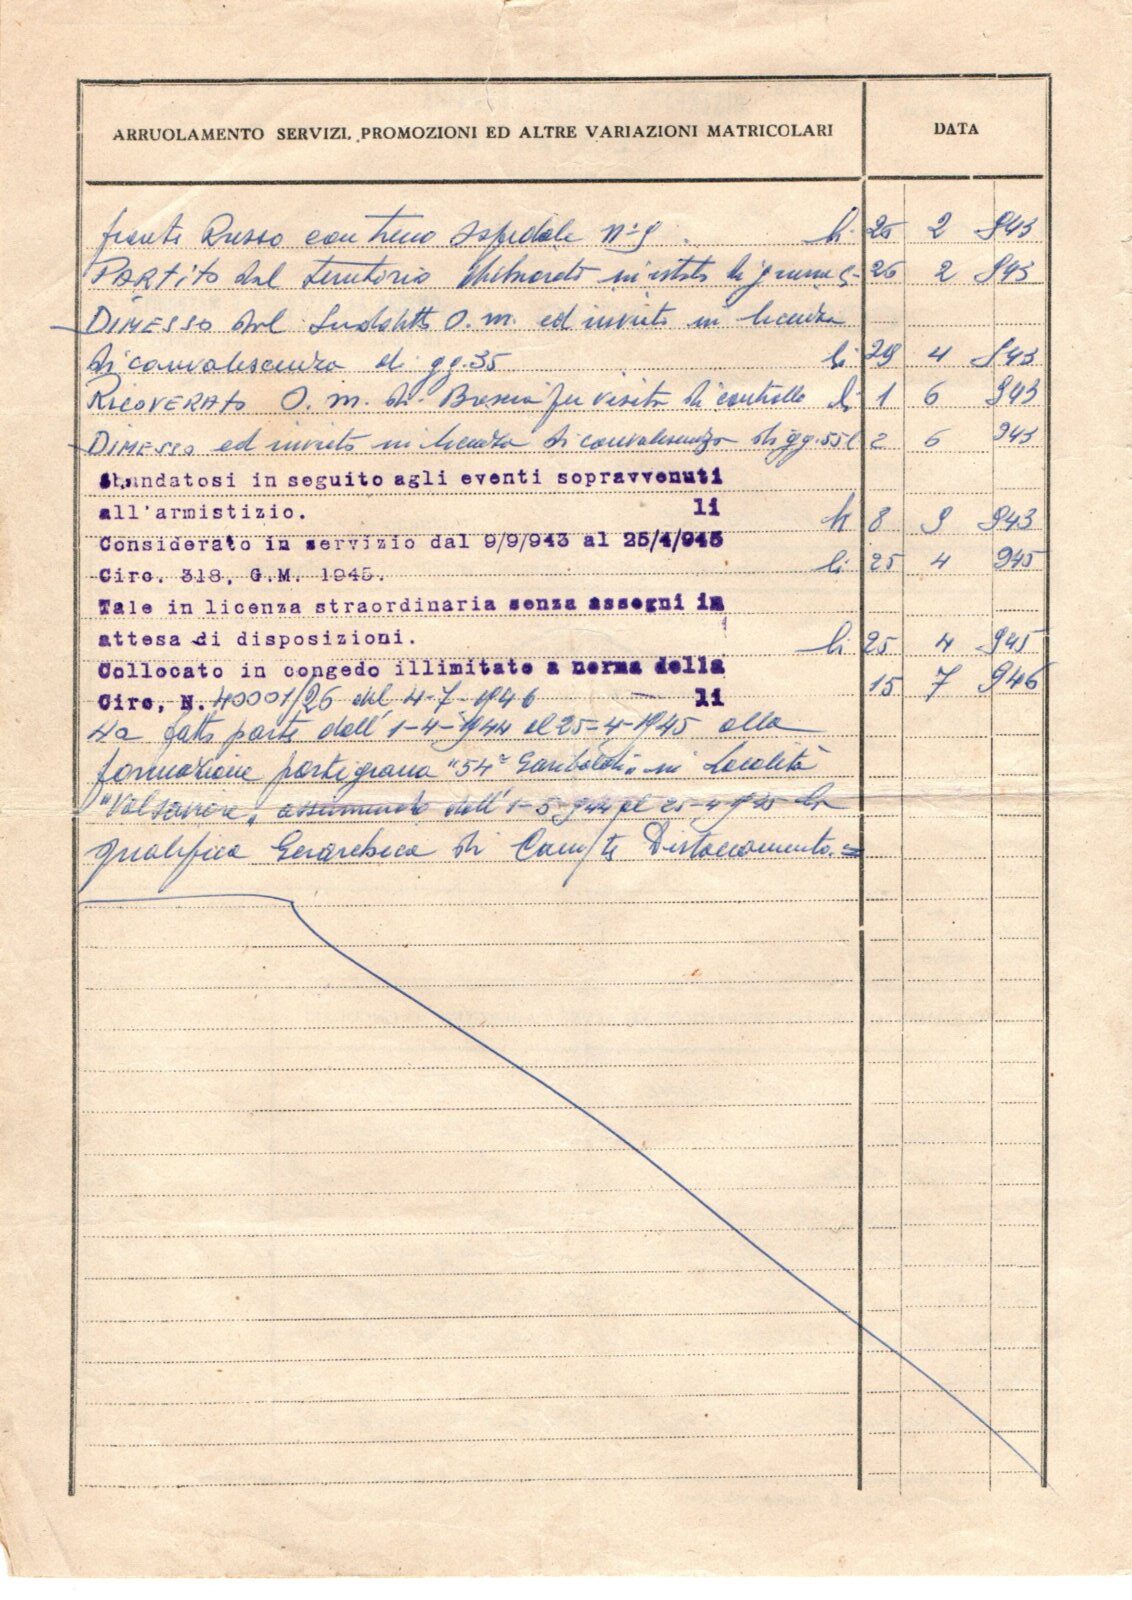 ARRUOLAMENTO SERVIZI, PROMOZIONI ED ALTRE VARIAZIONI MATRICOLARI DATA
fronte Russo con treno Ospedale N° 9 li 25 2 943
PARTITO dal territorio in stato di guerra 26 2 943
DIMESSO dal Suddetto O.M. ed inviato in licenza
di convalescenza di gg. 35 li 29 4 943
RICOVERATO O.M. di Brescia per visita di controllo li 1 6 943
DIMESSO ed inviato in licenza di convalescenza di gg. 55 2 6 943
Sbandatosi in seguito agli eventi sopravvenuti
all'armistizio. li li 8 9 943
Considerato in servizio dal 9/9/943 al 25/4/945
Circ. 318, G.M. 1945. li 25 4 945
Tale in licenza straordinaria senza assegni in
attesa di disposizioni. li 25 4 945
Collocato in congedo illimitato a norma della
Circ, N. 40001/26 del 4-7-1946 li 15 7 946
Ha fatto parte dall'1-4-1944 al 25-4-1945 alla
formazione partigiana "54ª Garibaldi" in Località
"Valsaviore", assumendo dall'1-5-944 al 25-4-945 la
qualifica Gerarchica di Com/te Distaccamento.=